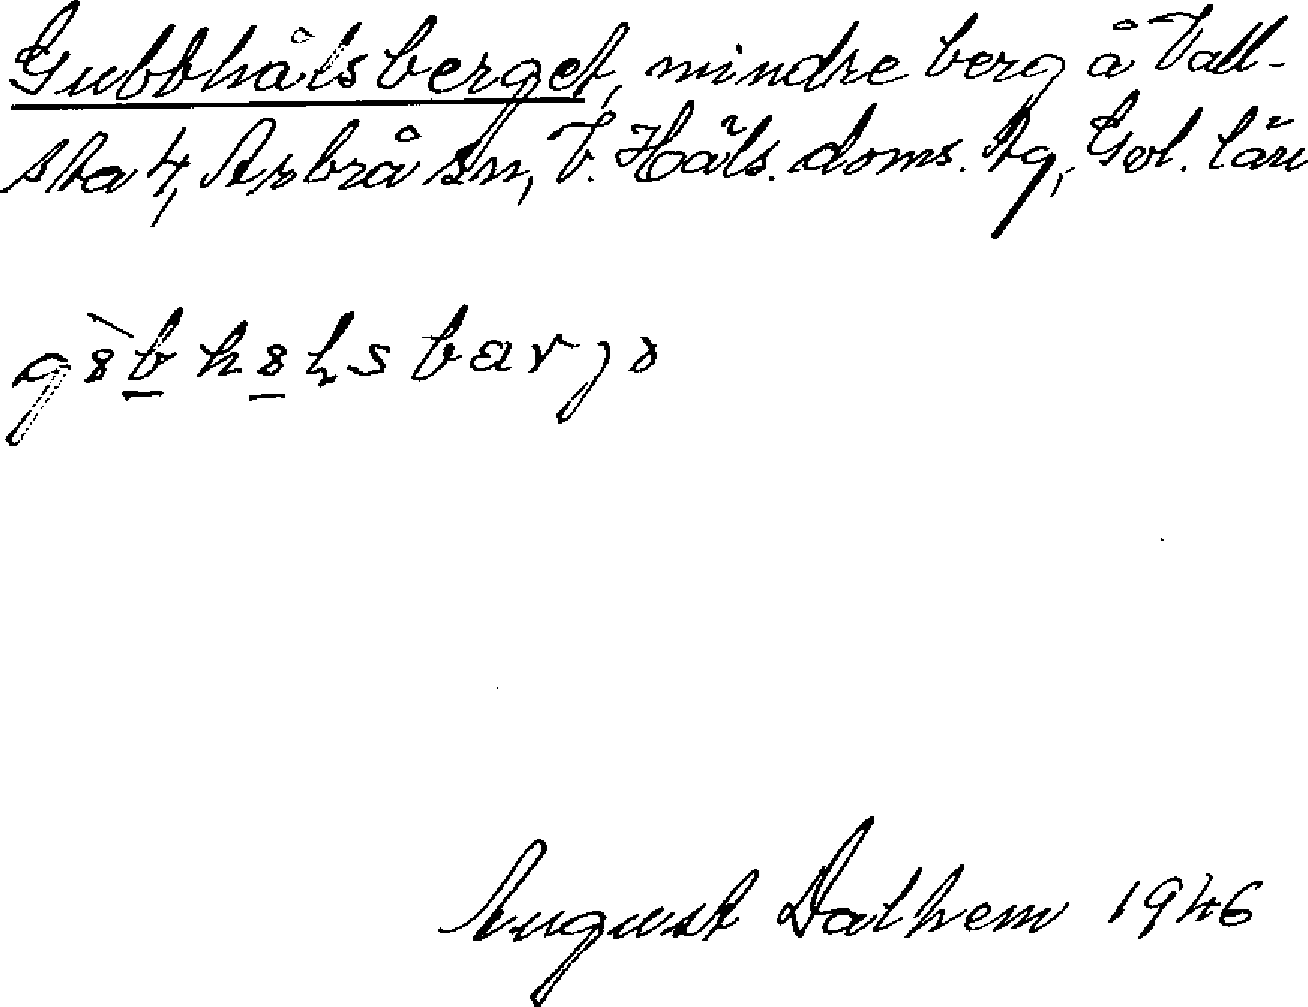 Gubbhålsberget, mindre berg å Vall-
sta 4, Arbrå sn, V. Häls. doms. tg, Gvl. län
August Dalhem 1946